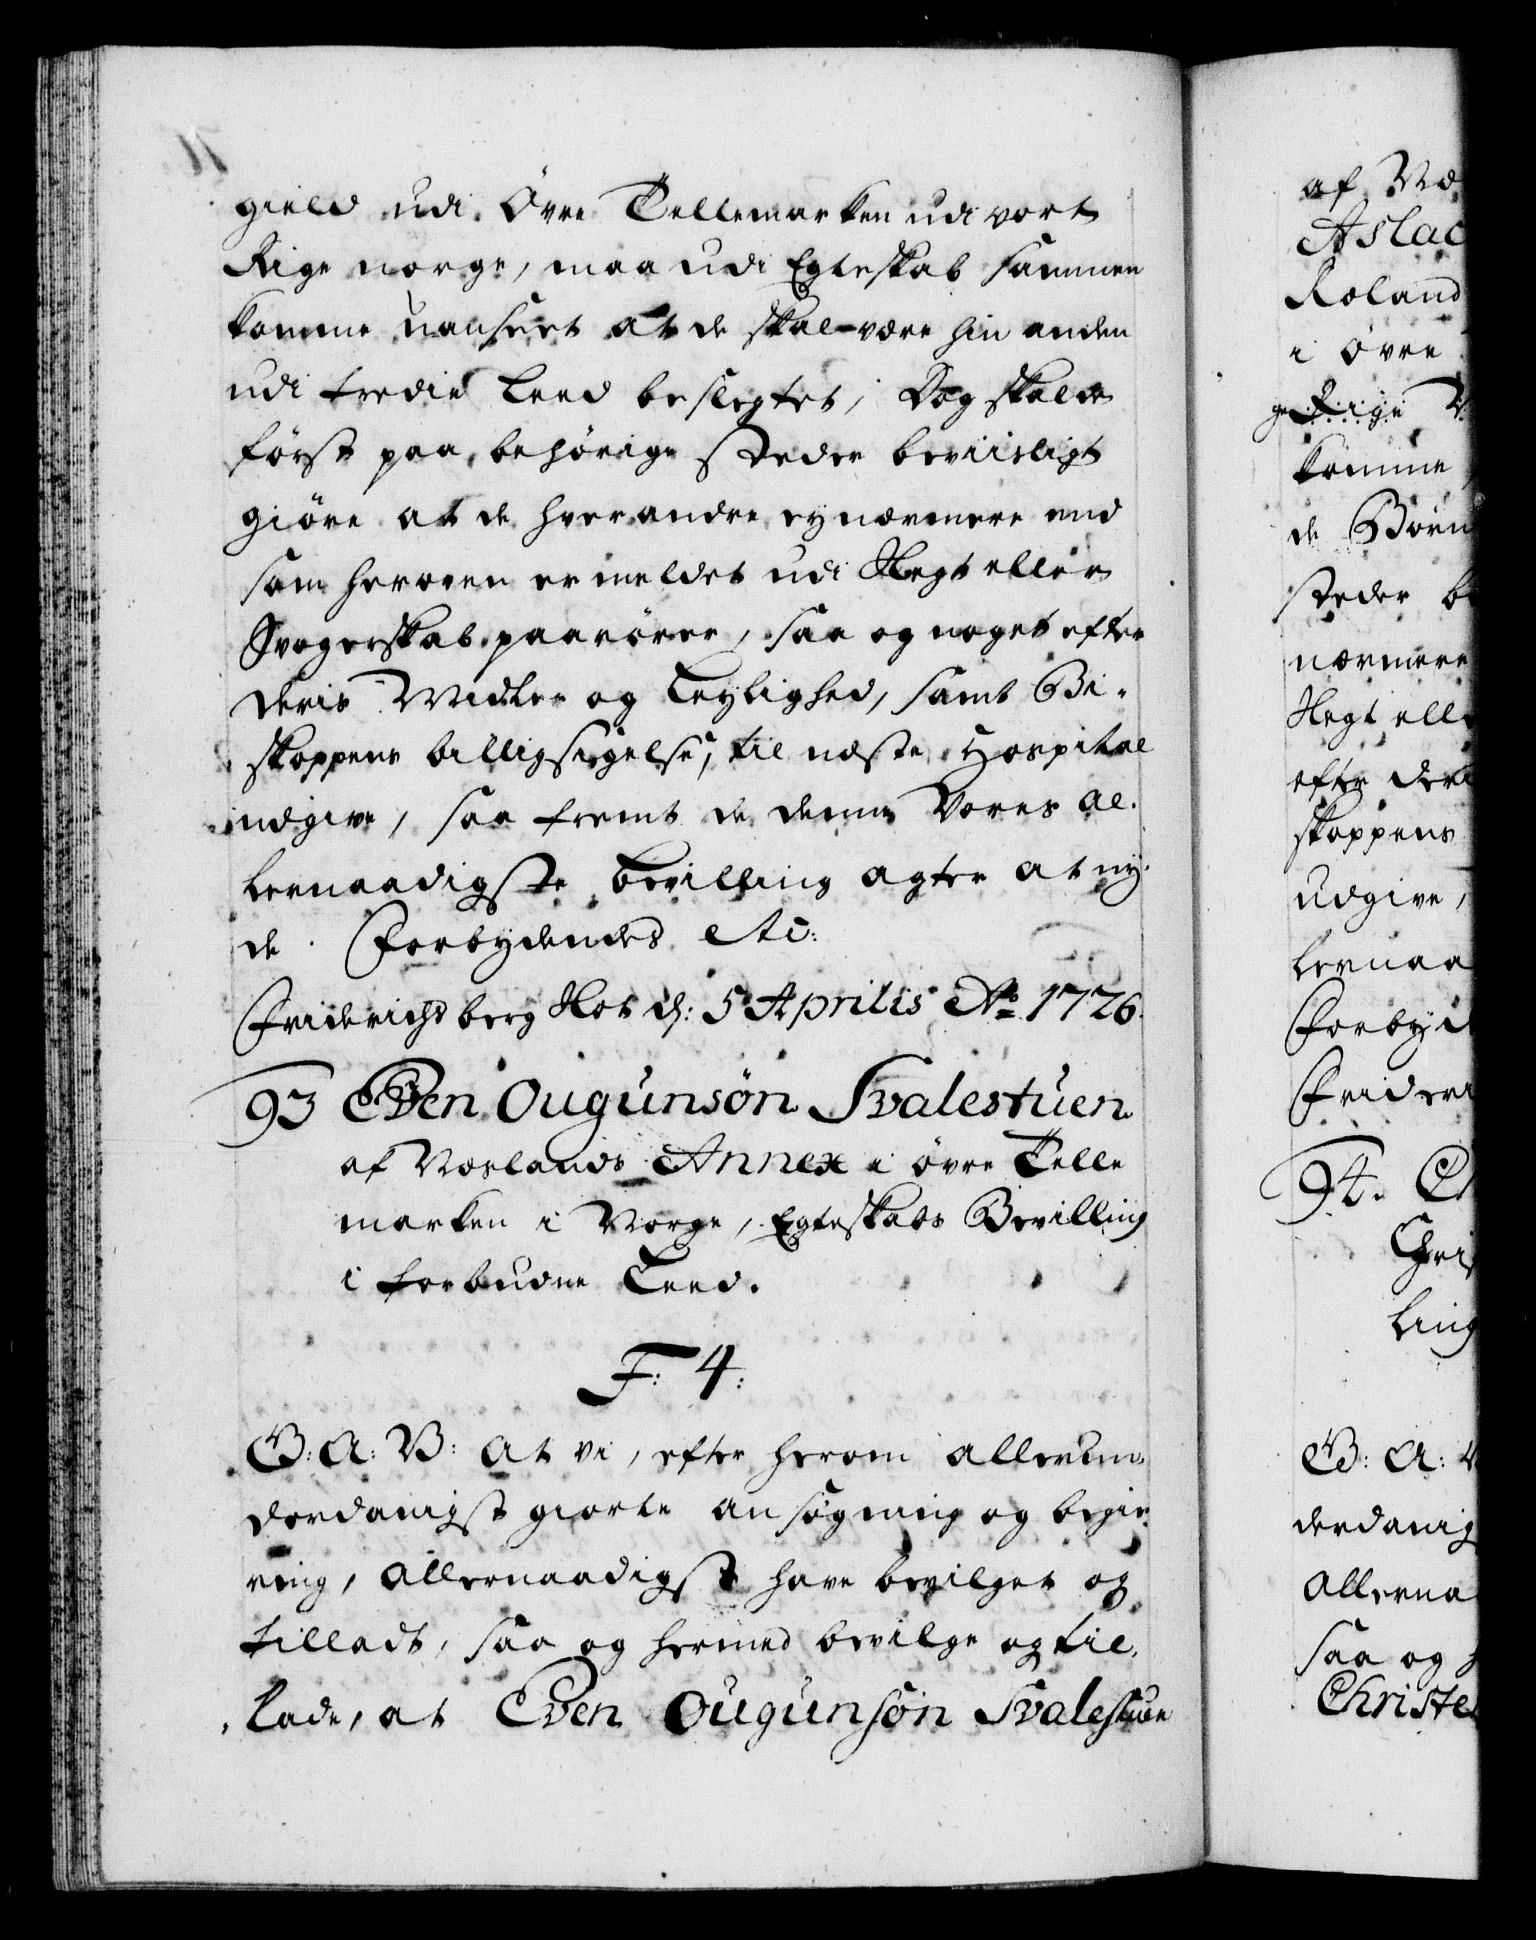 gield udi Øvre Tellemarken udi vort
Rige norge, maa udi Egteskab sammen
komme uanseet at de skal være hin anden
udi tredie Leed beslegtet, Dog skal de
først paa behørige steder beviisligt
giøre at de hverandre ey nærmere end
som heroven er meldet udi Slegt eller
Svogerskab paarører, saa og noget efter
deris Midler og Leylighed, samt Bi-
skoppens billigsigelse, til næste Hospital
udgive, saa fremt de denne Vores al-
lernaadigste bevilling agter at ny-
de. Forbydendes etc:
Friderichsberg Slot d: 5 Aprilis Ao 1726.
93 Even Ougunsøn Svalestuen
af Næslands Annex i øvre Telle
marken i Norge, Egteskabs Bevilling
i forbudne Leed.
F: 4:
G: A: V: At vi, efter herom allerun-
derdanigst giorte ansøgning og begie-
ring, allernaadigst have bevilget og
tilladt, saa og hermed bevilge og til-
lade, at Even Ougunsøn Svalestuen
af Næ
Aslac
Roland
i øvre
Rige N
komme
de Børn
steder be
nærmere
Slegt elle
efter deri
skoppens
udgive,
lernaa
Forbyd
Frideri
94. C
Chris
ling
G: A: V
derdanig
allerna
saa og h
Christe